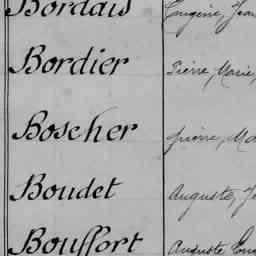 Bordais Eugène, Jean
Bordier Pierre, Marie,
Boscher pierre, Ma
Boudet Auguste, Je
Bouffort Auguste Eug